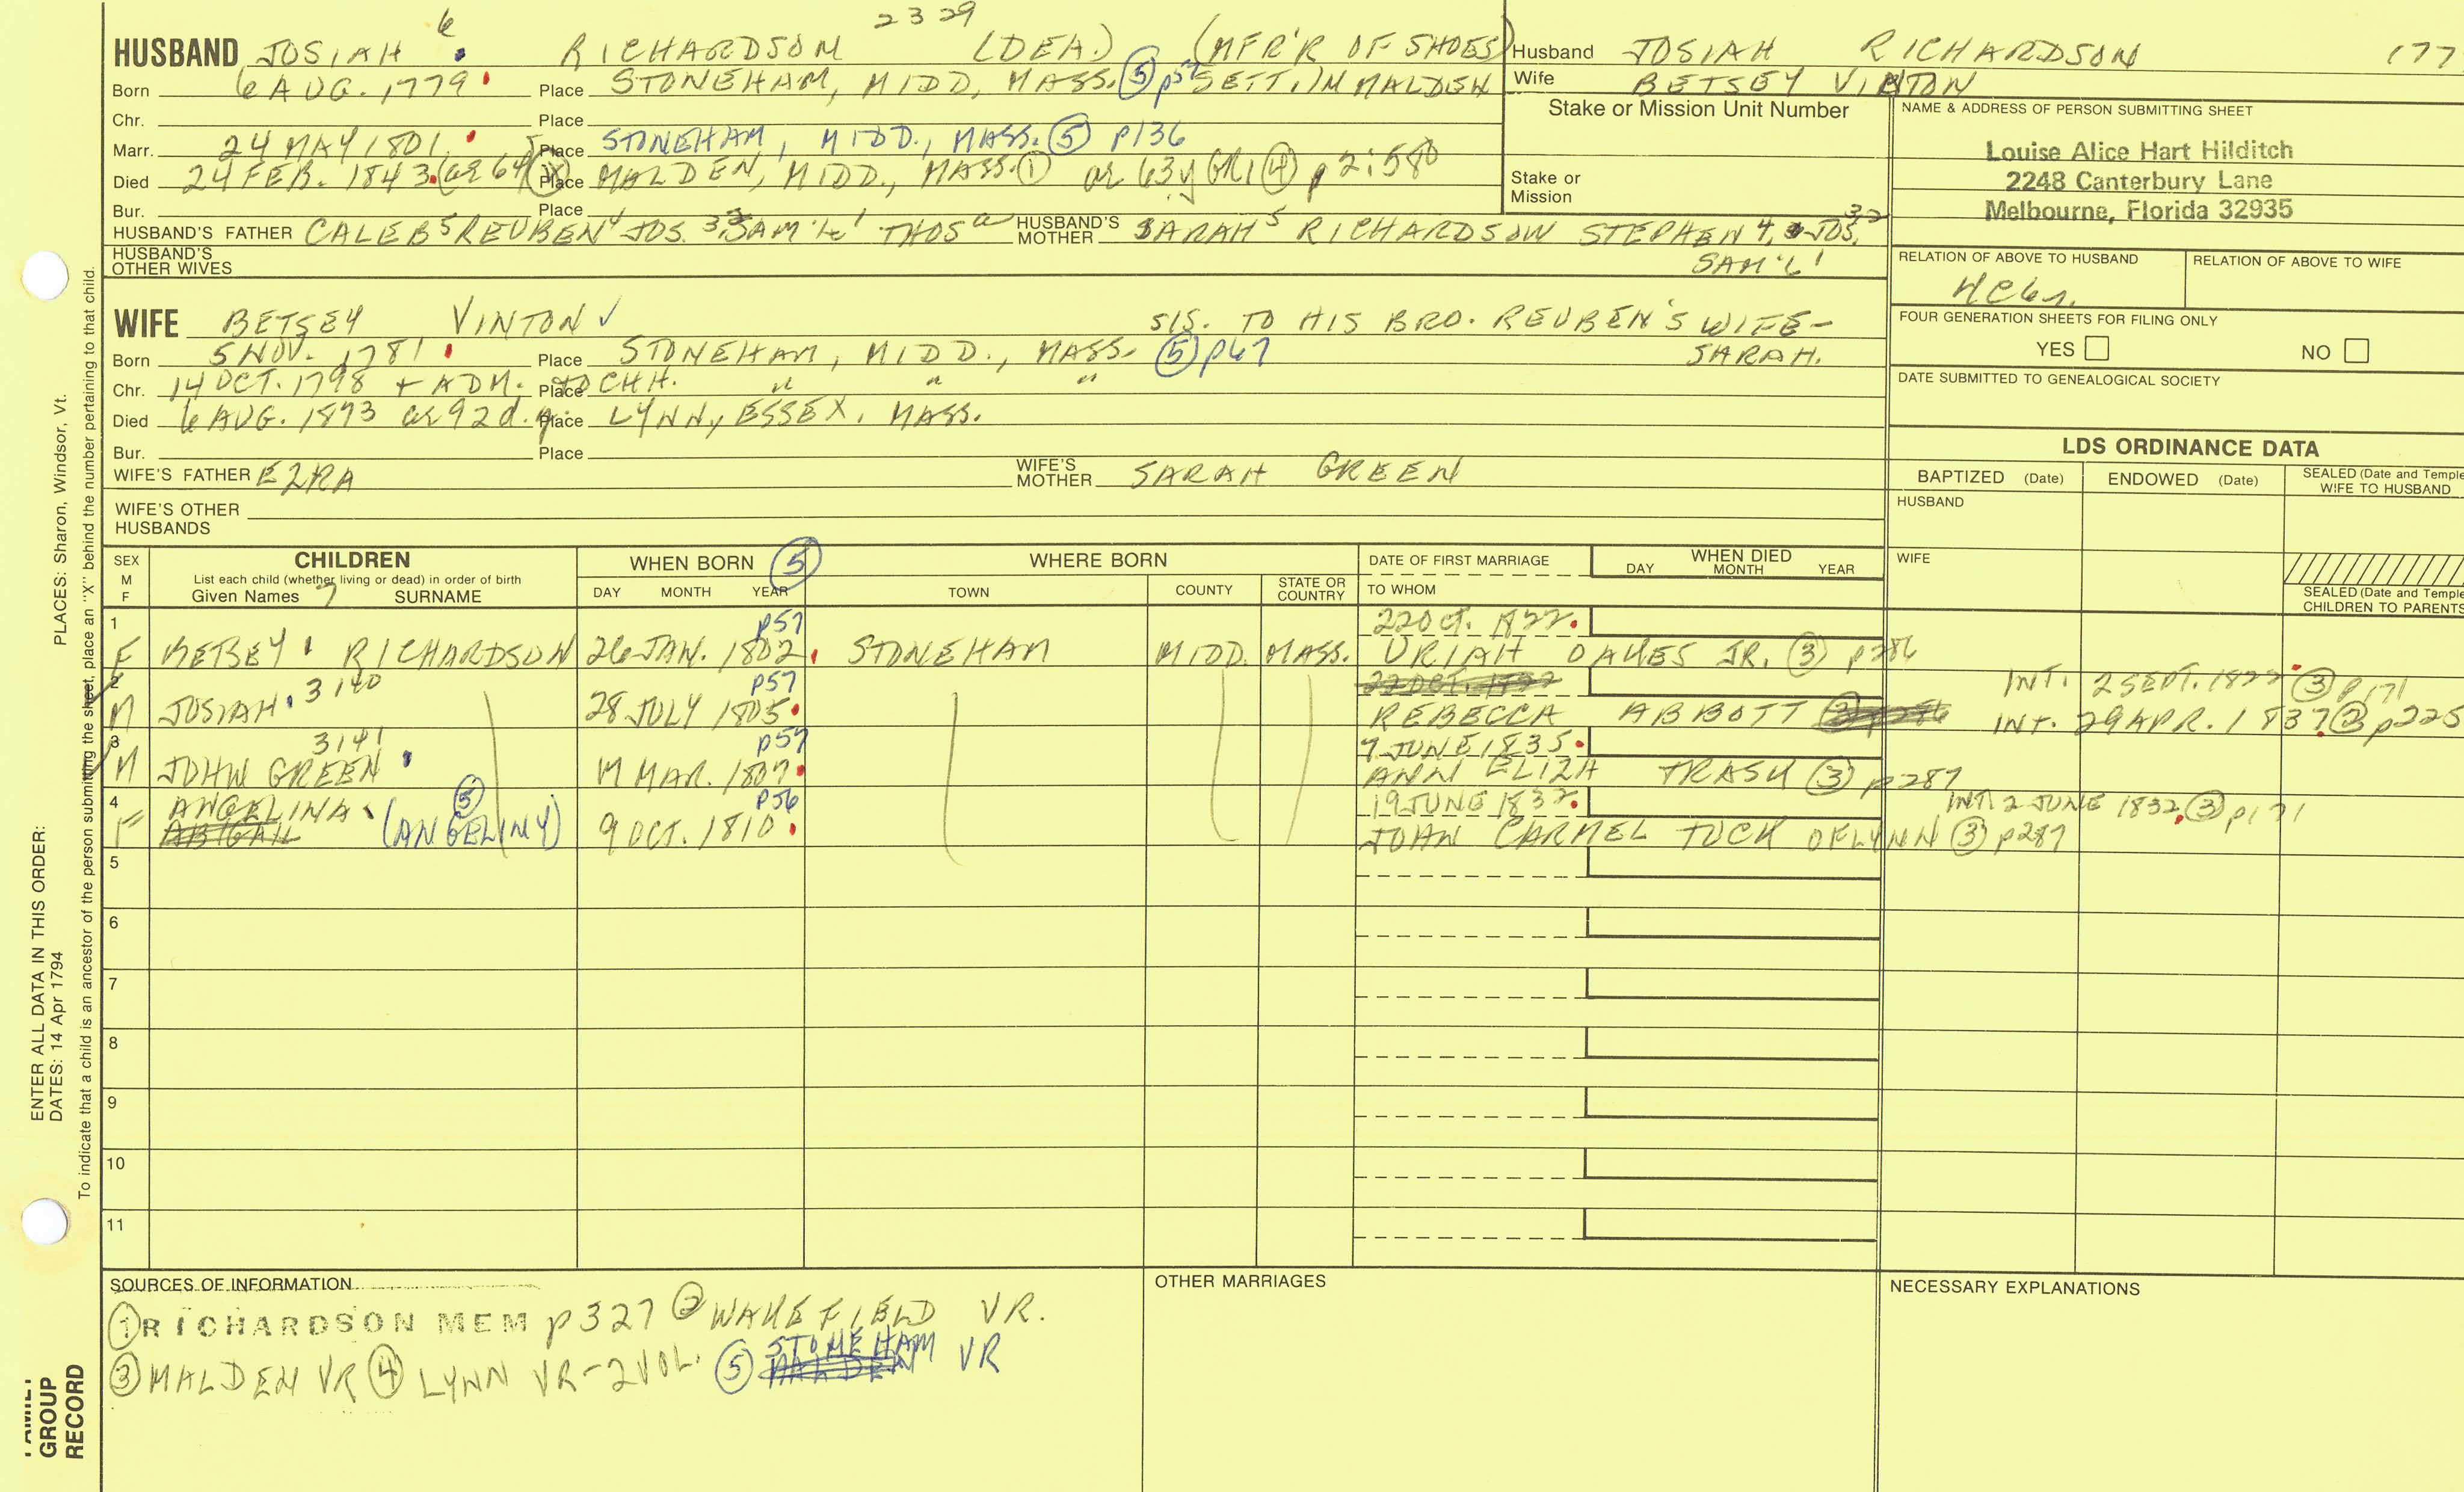 2329
HUSBAND JOSIAH 6 RICHARDSON (DEA.) (MFR'R OF SHOES)
Born 6 AUG. 1779 Place STONEHAM, MIDD, MASS. (5) p57 SETT. IN MALDEN
Chr. Place
Marr. 24 MAY 1801 Place STONEHAM, MIDD., MASS. (5) P136
Died 24 FEB. 1843 (ae 64) Place MALDEN, MIDD., MASS. (1) ae 63y GR1 (4) p 2:580
Bur. Place
HUSBAND'S FATHER CALEB 5 REUBEN 4 JOS. 3, 2 SAM'L 1 THOS a HUSBAND'S MOTHER SARAH 5 RICHARDSON STEPHEN 4, JOS. 3,2
SAM'L 1
HUSBAND'S OTHER WIVES
WIFE BETSEY VINTON ✓ SIS. TO HIS BRO. REUBEN'S WIFE-
SARAH.
Born 5 NOV. 1781 Place STONEHAM, MIDD., MASS. (5) p67
Chr. 14 OCT. 1798 + ADM. Place TO CHH. " " "
Died 6 AUG. 1873 ae 92 d. Place LYNN, ESSEX, MASS.
Bur. Place
WIFE'S FATHER EZRA WIFE'S MOTHER SARAH GREEN
WIFE'S OTHER HUSBANDS
Husband JOSIAH RICHARDSON 177
Wife BETSEY VINTON
Stake or Mission Unit Number
Stake or Mission
NAME & ADDRESS OF PERSON SUBMITTING SHEET
Louise Alice Hart Hilditch
2248 Canterbury Lane
Melbourne, Florida 32935
RELATION OF ABOVE TO HUSBAND RELATION OF ABOVE TO WIFE
FOUR GENERATION SHEETS FOR FILING ONLY
YES NO
DATE SUBMITTED TO GENEALOGICAL SOCIETY
LDS ORDINANCE DATA
BAPTIZED (Date) ENDOWED (Date) SEALED (Date and Temple
WIFE TO HUSBAND
HUSBAND
WIFE
SEALED (Date and Temple
CHILDREN TO PARENTS
SEX M F CHILDREN WHEN BORN (5) WHERE BORN DATE OF FIRST MARRIAGE WHEN DIED
List each child (whether living or dead) in order of birth
Given Names SURNAME DAY MONTH YEAR TOWN COUNTY STATE OR COUNTRY TO WHOM DAY MONTH YEAR
1 p57 22 OCT. 1822
F BETSEY RICHARDSON 26 JAN. 1802 STONEHAM MIDD. MASS. URIAH OAKES JR. (3) p286
INT. 2 SEPT. 1822 (3) p171
2 3140 p57 22 OCT. 1822
M JOSIAH 28 JULY 1805 REBECCA ABBOTT INT. 29 APR. 1837 (3) p225
3 3141 p57 7 JUNE 1835
M JOHN GREEN 17 MAR. 1807 ANN ELIZH TRASK (3) p287
4 ANGELINA (5) p56 19 JUNE 1832 INT. 2 JUNE 1832 (3) p171
F ABIGAIL (ANGELINY) 9 OCT. 1810 JOHN CARMEL TUCK OF LYNN (3) p287
5
6
7
8
9
10
11
SOURCES OF INFORMATION
(1) RICHARDSON MEM p327 (2) WAKEFIELD VR.
(3) MALDEN VR (4) LYNN VR-2VOL. (5) STONEHAM MALDEN VR
OTHER MARRIAGES
NECESSARY EXPLANATIONS
ENTER ALL DATA IN THIS ORDER: PLACES: Sharon, Windsor, Vt.
DATES: 14 Apr 1794
To indicate that a child is an ancestor of the person submitting the sheet, place an "X" behind the number pertaining to that child.
FAMILY
GROUP
RECORD